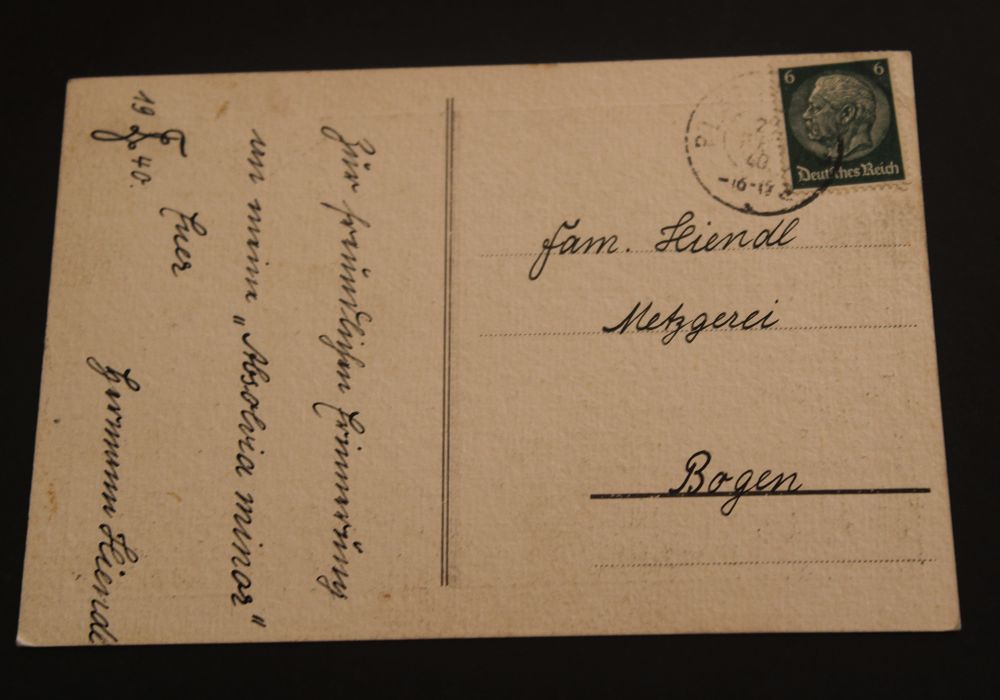 Zur freundlichen Erinnerung
an meine „Absolvia minor"
Euer
Hermann Hiendl
19 40.
6 6
Deutsches Reich
40
-16-17
Fam. Hiendl
Metzgerei
Bogen